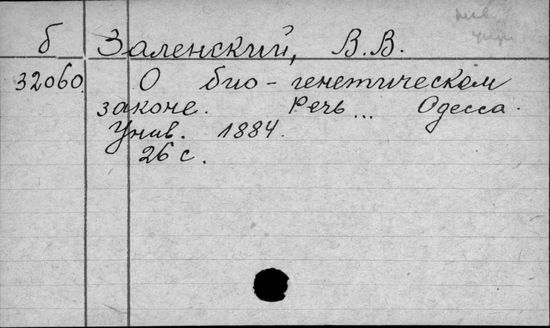 б Заленский, В.В.
32060. О био-генетическом
законе. Речь... Одесса.
Унив. 1884.
26 с.